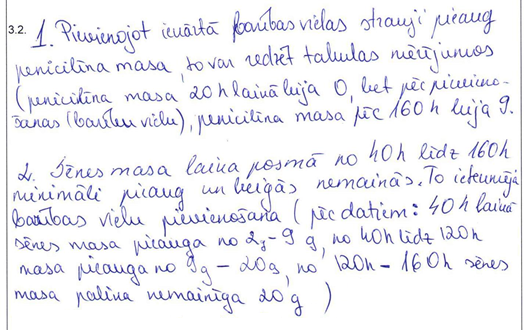 3.2. 1. Pievienojot ienārtā barības vielas strauji pieaug
penicilīna masa, to var redzēt tabulas mērījumos
(penicilīna masa 20 h laikā bija 0, bet pēc pievieno-
šanas (barību vielu), penicilīna masa pēc 160 h bija 9.
2. Sēnes masa laika posmā no 40h līdz 160h
minimāli pieaug un beigās nemainās. To ietekmēja
barības vielu pievienošana (pēc datiem: 40 h laikā
sēnes masa pieauga no 2g - 9 g, no 40h līdz 120h
masa pieauga no 9g - 20g, no 120h - 160h sēnes
masa palika nemainīga 20 g )